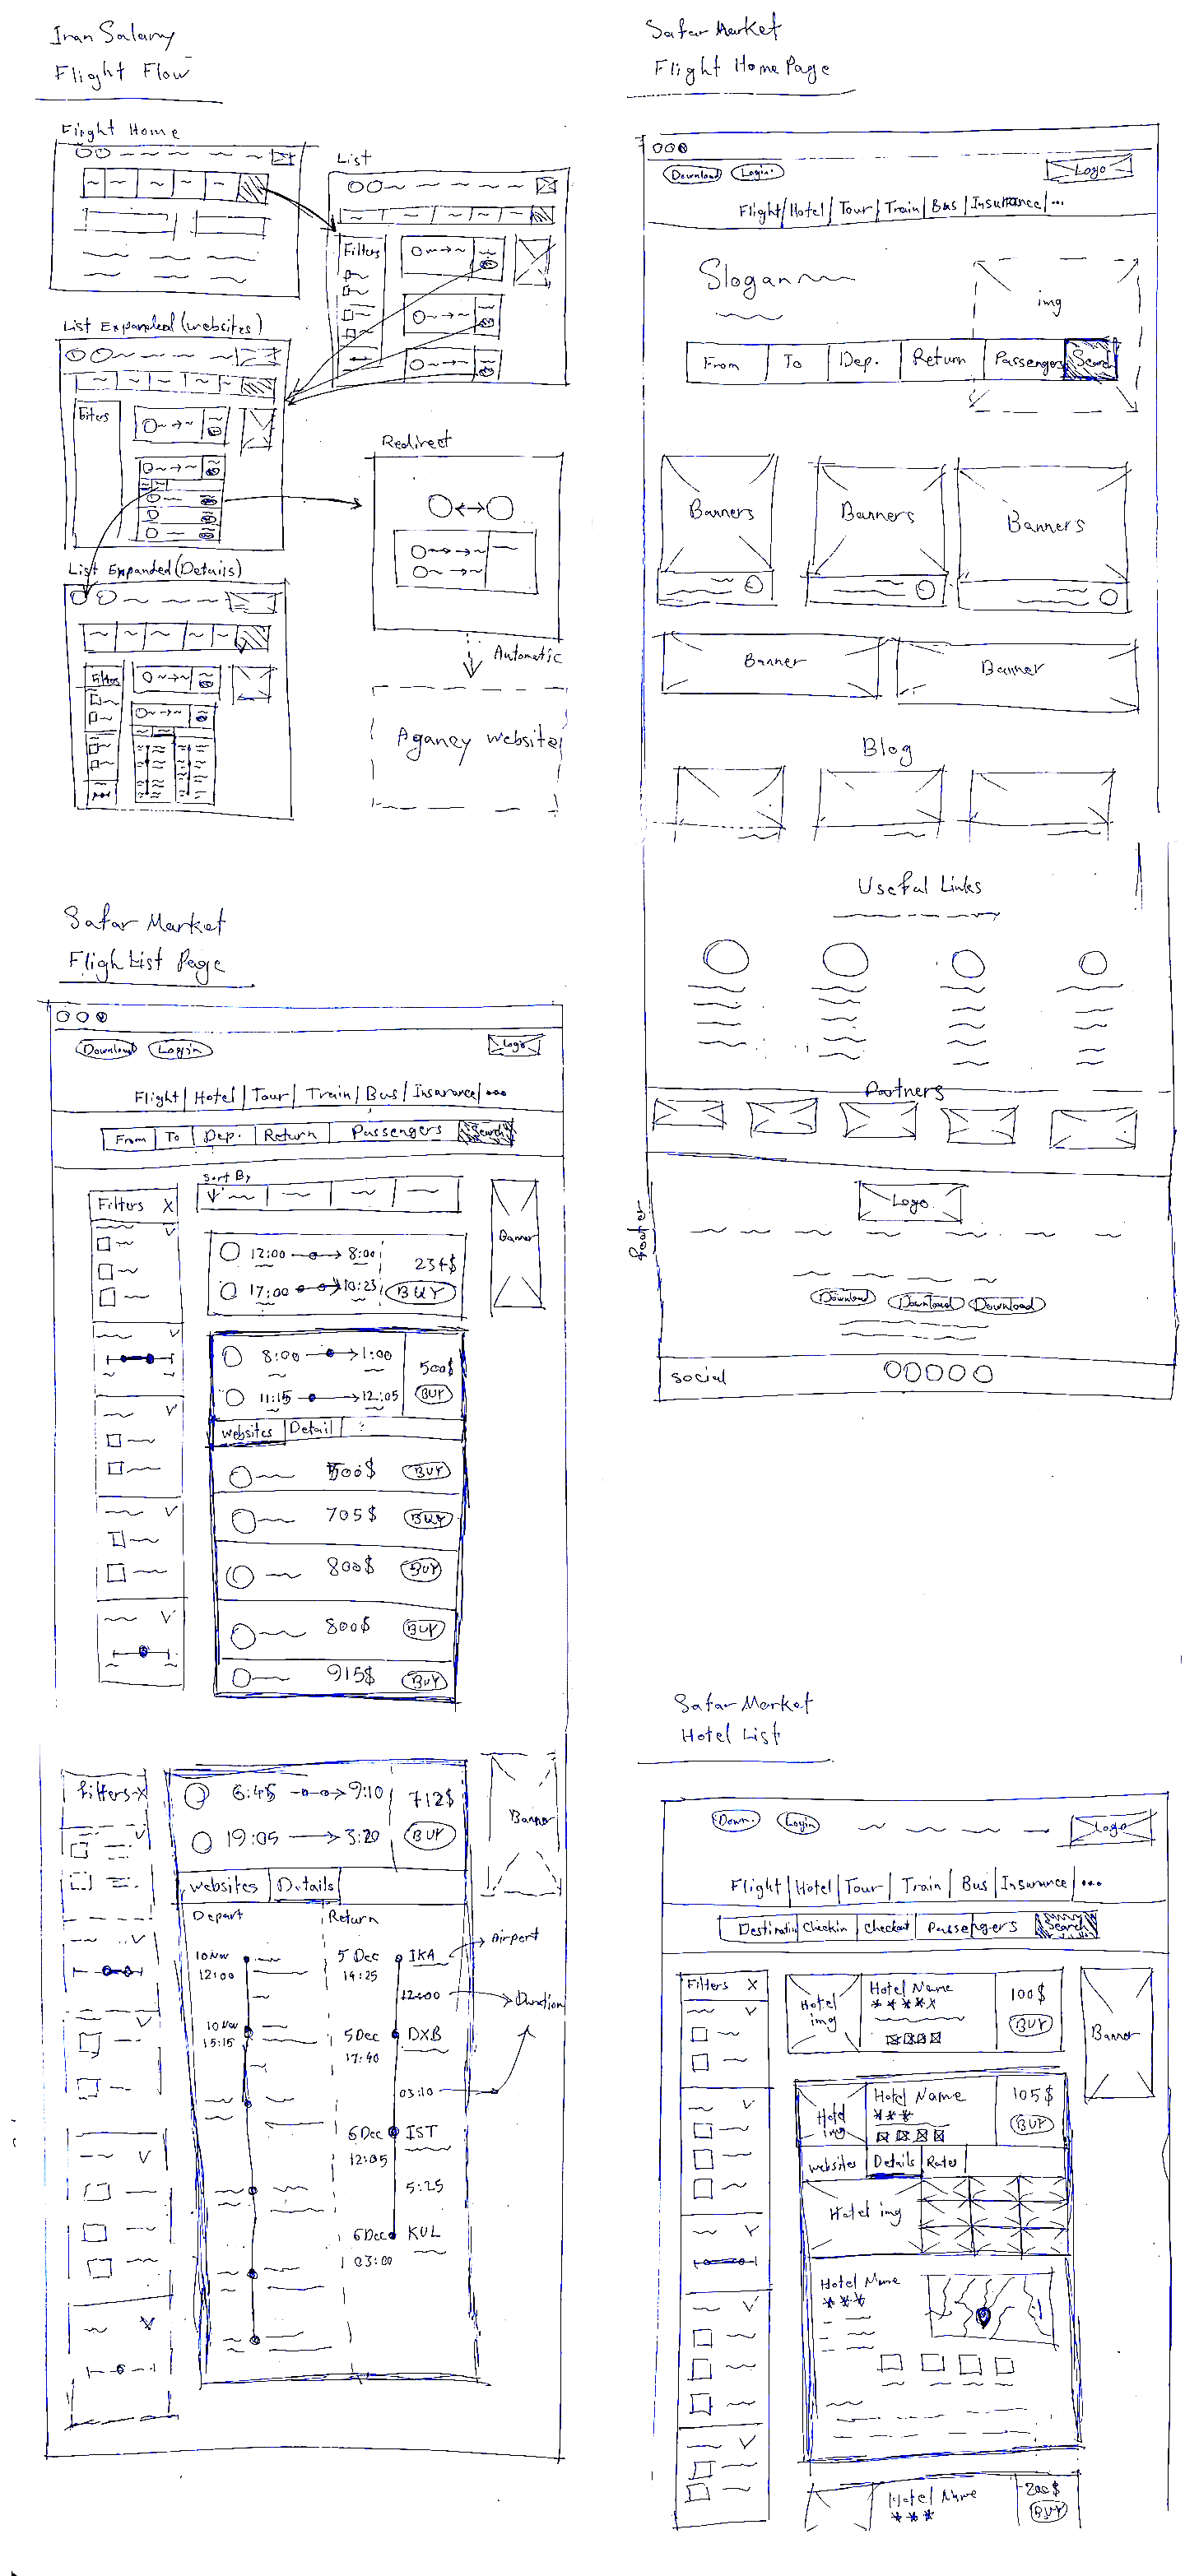 Iran Salamy
Flight Flow
Flight Home
List
Filters
List Expanded (websites)
Redirect
List Expanded (Details)
Filters
Automatic
Aganey website
Safar Market
Flight Home Page
Download
Login
Logo
Flight/ Hotel/ Tour/ Train/ Bus/ Insurance/ ...
Slogan
img
From To Dep. Return Passengers Search
Banners Banners Banners
Banner Banner
Blog
Useful Links
Partners
footer
Logo
Download Download Download
social
Safar Market
Fligh List Page
Download Login Logo
Flight/ Hotel/ Tour/ Train/ Bus/ Insurance/ ...
From To Dep. Return Passengers Search
Sort By
Filters X
Banner
12:00 8:00 234$
17:00 10:23 BUY
8:00 1:00 500$
11:15 12:05 BUY
websites Detail ?
500$ BUY
705$ BUY
800$ BUY
800$ BUY
915$ BUY
filters X
6:45 9:10 712$
19:05 3:20 BUY
Banner
websites Details
Depart Return
10 Nov
12:00
10 Nov
15:15
5 Dec IKA Airport
14:25
12:00 Duration
5 Dec DXB
17:40
03:10
6 Dec IST
12:05
5:25
6 Dec KUL
03:00
Safar Market
Hotel List
Down. Login Logo
Flight Hotel Tour Train Bus Insurance ...
Destination Checkin Checkout Passengers Search
Filters X
Hotel img
Hotel Name
100$
BUY
Banner
Hotel img
Hotel Name
105$
BUY
websites Details Rates
Hotel img
Hotel Name
Hotel Name
200$
BUY